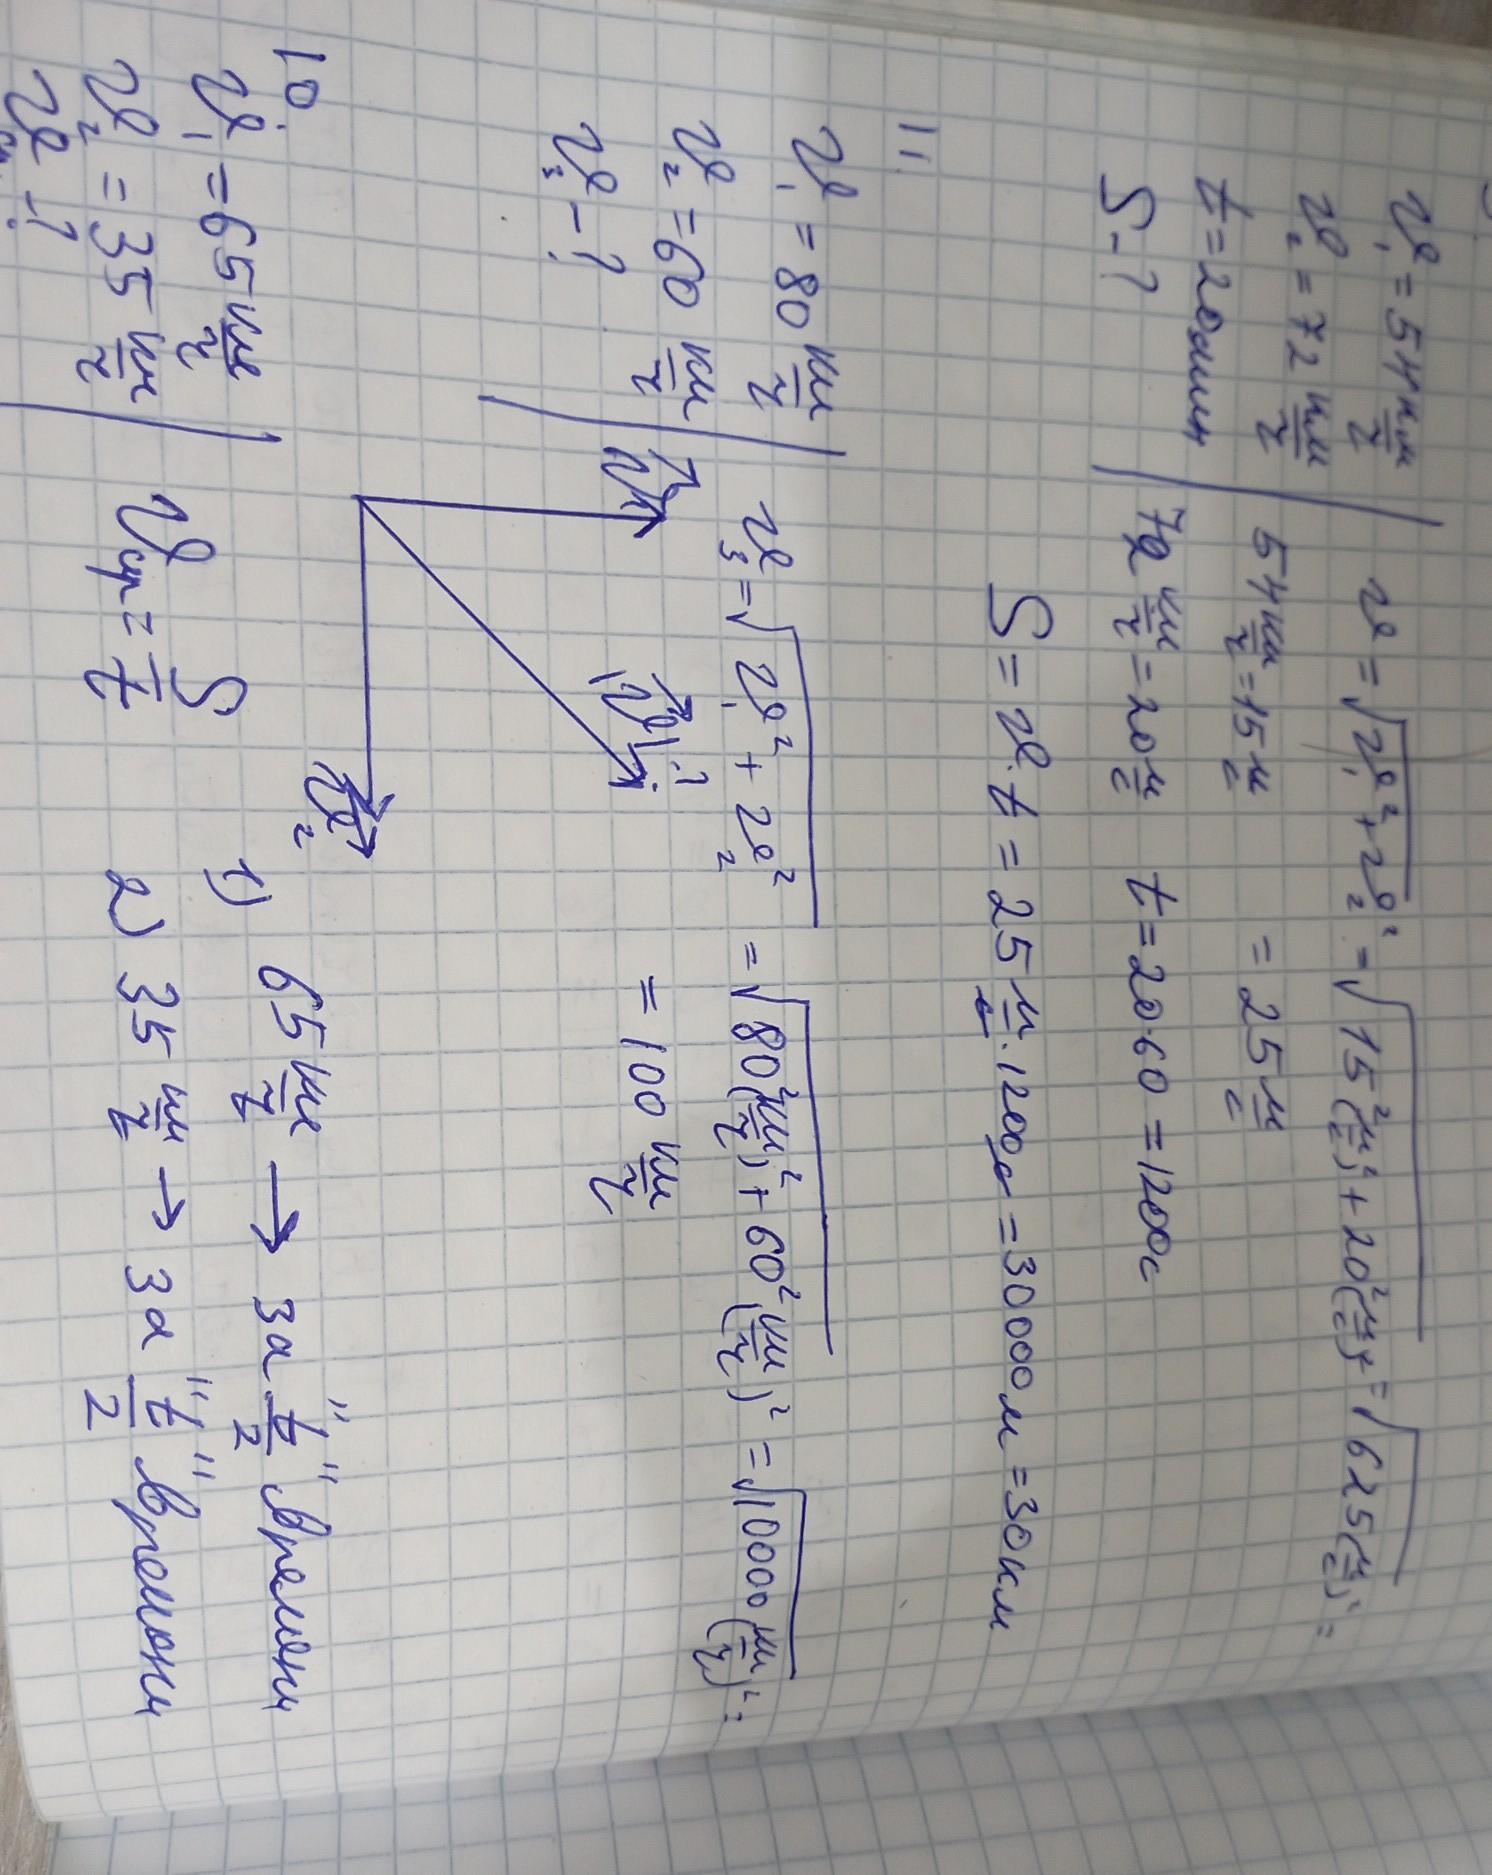 v₁ = 54 км/ч
v₂ = 72 км/ч
t = 20 мин
S - ?
v = √(v₁² + v₂²) = √(15² (м/с)² + 20² (м/с)²) = √(625 (м/с)²) =
54 км/ч = 15 м/с = 25 м/с
72 км/ч = 20 м/с t = 20·60 = 1200с
S = v·t = 25 м/с · 1200с = 30000м = 30км
11.
v₁ = 80 км/ч
v₂ = 60 км/ч
v₃ - ?
v₃ = √(v₁² + v₂²) = √(80² (км/ч)² + 60² (км/ч)²) = √(10000 (км/ч)²) =
= 100 км/ч
|v⃗| - ?
v⃗₂
10.
v₁ = 65 км/ч
v₂ = 35 км/ч
vср. - ?
vср = S/t
1) 65 км/ч → за "t/2" времени
2) 35 км/ч → за "t/2" времени